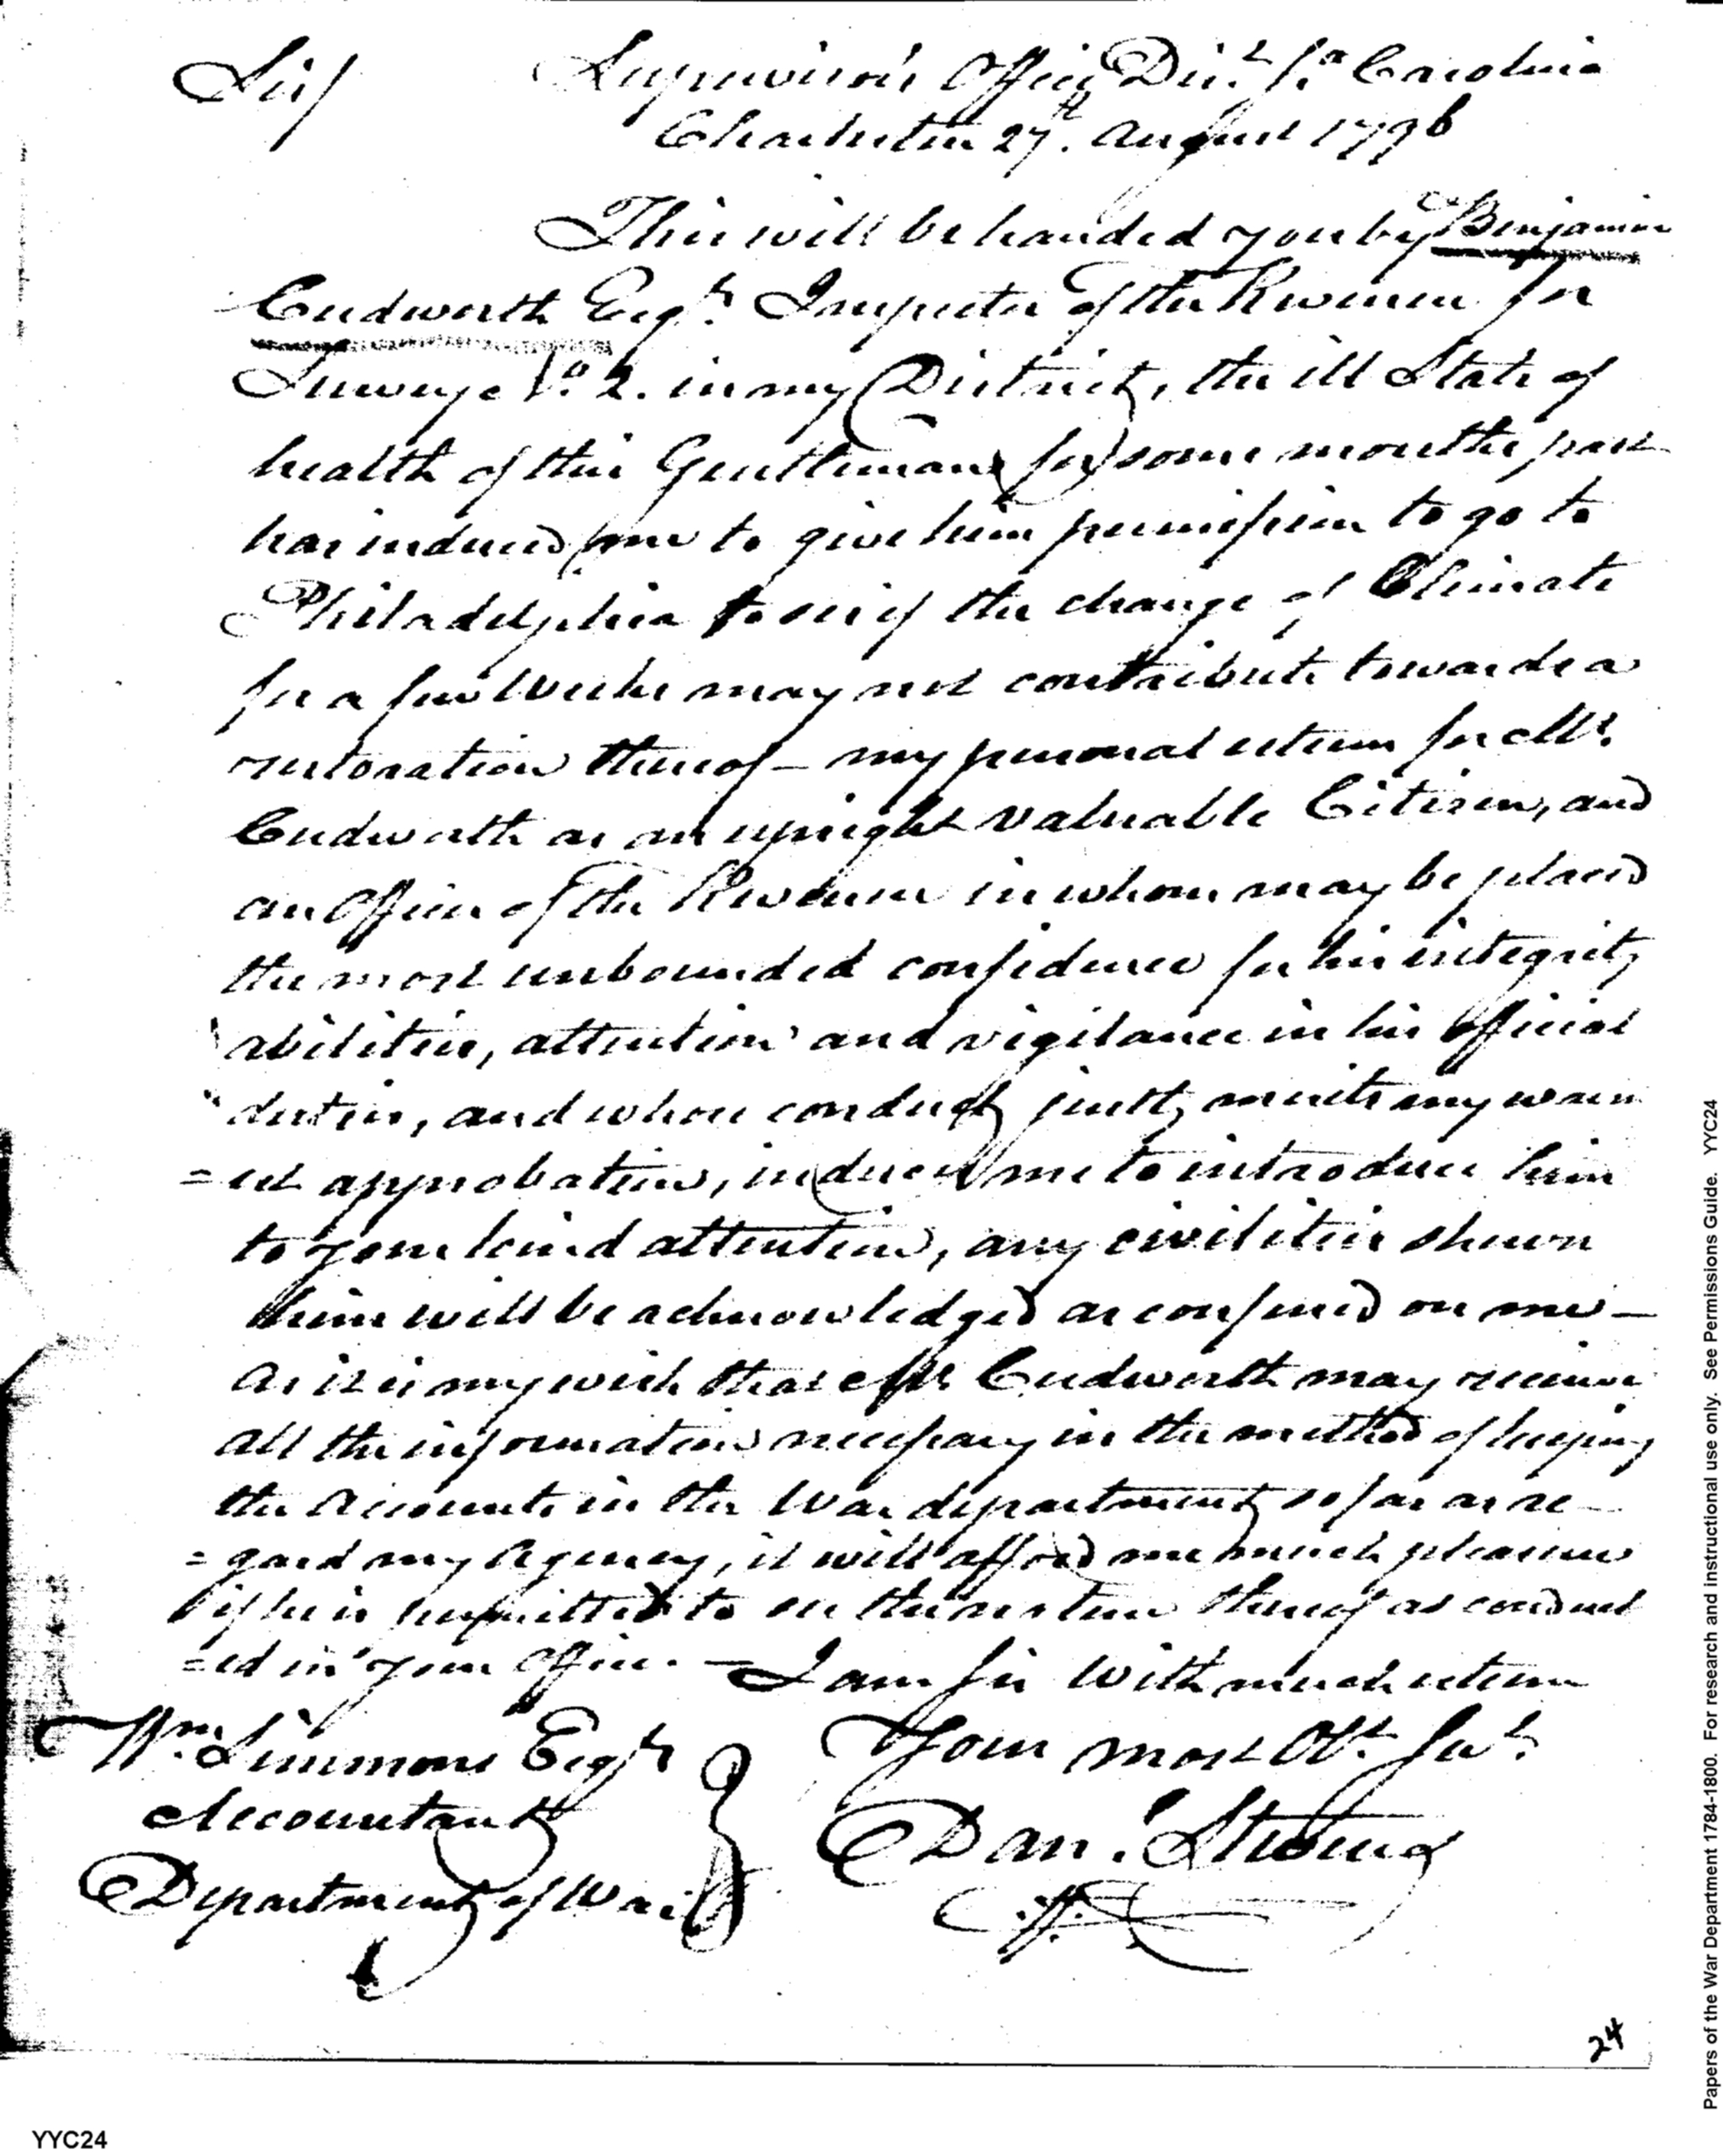 Sir/ Supervisor's Office Dist. So. Carolina
Charleston 27th. August 1796
This will be handed you by Benjamin
Cudworth Esqr. Inspector of the Revenue for
Survey No. 2. in my District, the ill State of
health of this Gentleman for some months past
has induced me to give him permission to go to
Philadelphia to see if the change of Climate
for a few Weeks may not contribute towards a
restoration thereof — my personal esteem for Mr.
Cudworth as an upright valuable Citizen, and
an Officer of the Revenue in whom may be placed
the most unbounded confidence for his integrity
abilities, attention and vigilance in his official
duties, and whose conduct justly merits my warm
=est approbation, induces me to introduce him
to your kind attention, any civilities shewn
him will be acknowledged as confered on me —
As it is my wish that Mr. Cudworth may receive
all the information necessary in the method of keeping
the Accounts in the War department so far as re—
=gard my Agency, it will afford me much pleasure
if he is permitted to see the system thereof as conduct
=ed in your Office. — I am Sir With much esteem
Your most Obt. Sert.
Wm. Simmons Esqr
Accountant
Department of War
Danl. Stevens
24
YYC24
Papers of the War Department 1784-1800. For research and instructional use only. See Permissions Guide. YYC24